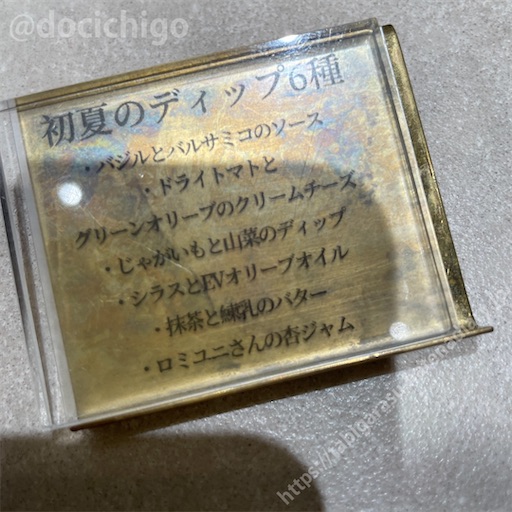 @docichigo
初夏のディップ6種
・バジルとバルサミコのソース
・ドライトマトと
グリーンオリーブのクリームチーズ
・じゃがいもと山菜のディップ
・シラスとEVオリーブオイル
・抹茶と練乳のバター
・ロミユニさんの杏ジャム